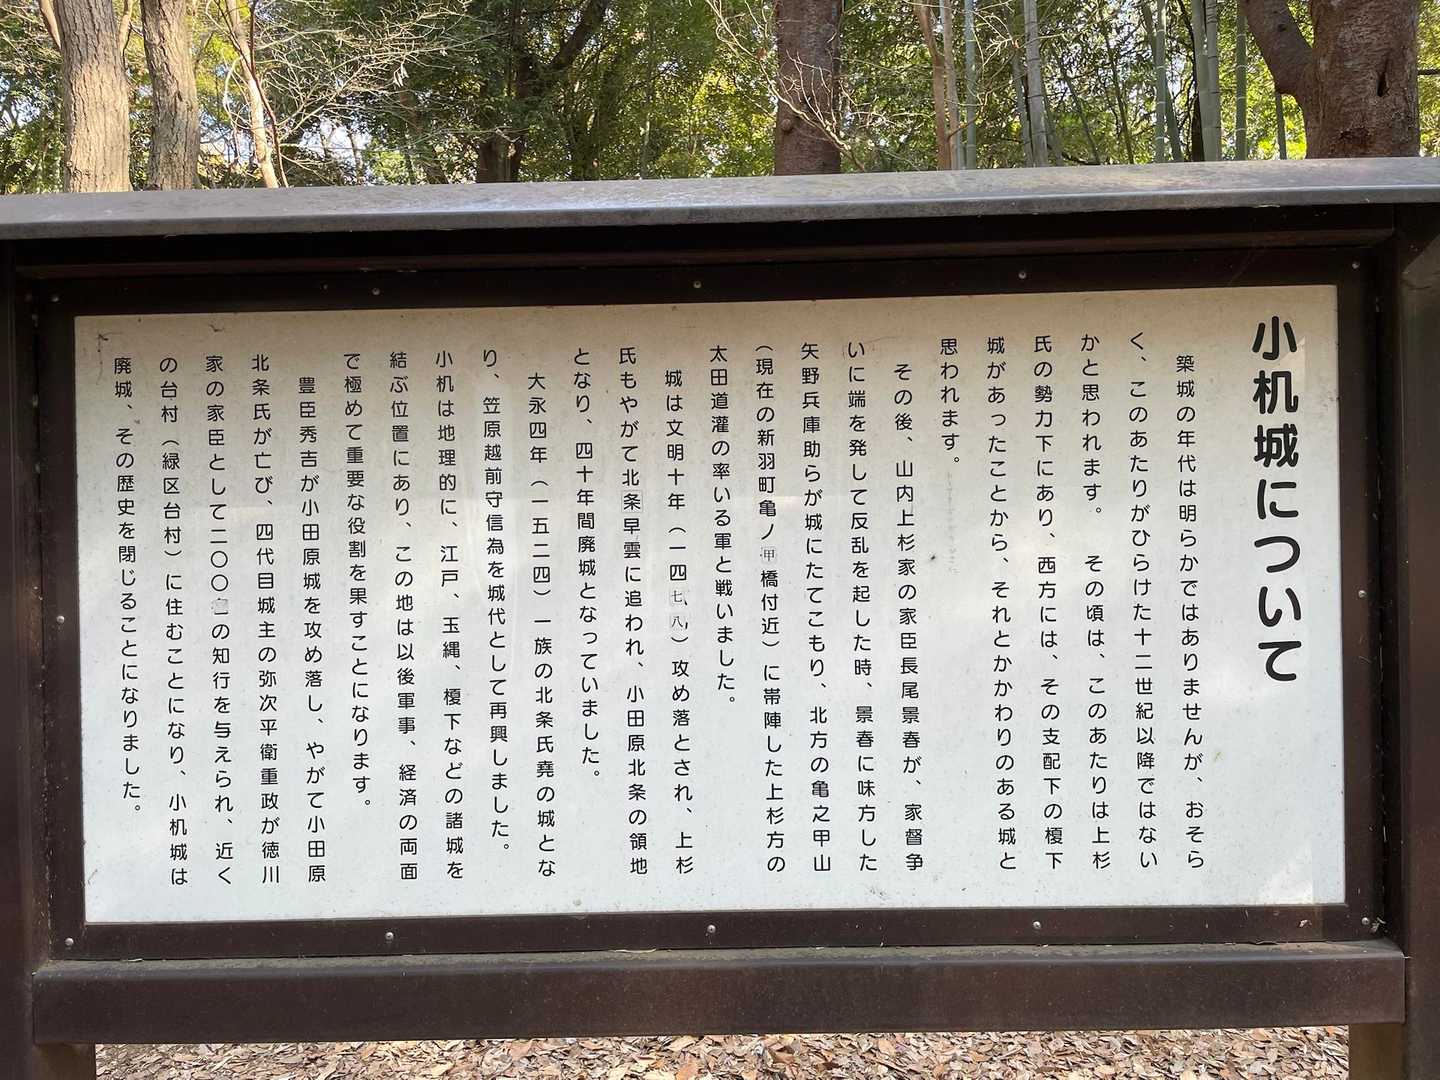 小机城について
築城の年代は明らかではありませんが、おそら
く、このあたりがひらけた十二世紀以降ではない
かと思われます。その頃は、このあたりは上杉
氏の勢力下にあり、西方には、その支配下の榎下
城があったことから、それとかかわりのある城と
思われます。
その後、山内上杉家の家臣長尾景春が、家督争
いに端を発して反乱を起した時、景春に味方した
矢野兵庫助らが城にたてこもり、北方の亀之甲山
（現在の新羽町亀ノ甲橋付近）に帯陣した上杉方の
太田道灌の率いる軍と戦いました。
城は文明十年（一四七八）攻め落とされ、上杉
氏もやがて北条早雲に追われ、小田原北条の領地
となり、四十年間廃城となっていました。
大永四年（一五二四）一族の北条氏堯の城とな
り、笠原越前守信為を城代として再興しました。
小机は地理的に、江戸、玉縄、榎下などの諸城を
結ぶ位置にあり、この地は以後軍事、経済の両面
で極めて重要な役割を果すことになります。
豊臣秀吉が小田原城を攻め落し、やがて小田原
北条氏が亡び、四代目城主の弥次平衛重政が徳川
家の家臣として二〇〇の知行を与えられ、近く
の台村（緑区台村）に住むことになり、小机城は
廃城、その歴史を閉じることになりました。